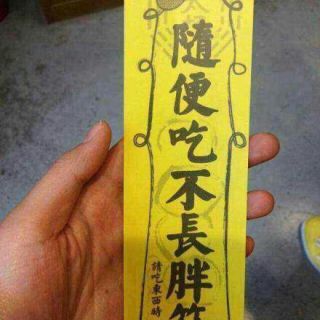 隨便吃不長胖符
請吃東西時